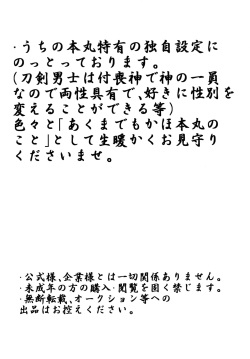 ・うちの本丸特有の独自設定に
のっとっております。
(刀剣男士は付喪神で神の一員
なので両性具有で、好きに性別を
変えることができる等)
色々と「あくまでもかほ本丸の
こと」として生暖かくお見守り
くださいませ。
・公式様、企業様とは一切関係ありません。
・未成年の方の購入・閲覧を固く禁じます。
・無断転載、オークション等への
出品はお控えください。